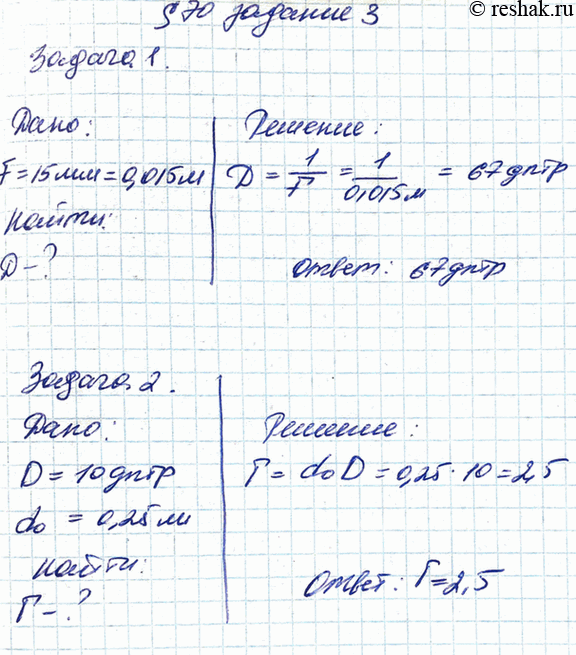 © reshak.ru
§ 70 задание 3
Задача 1.
Дано:
F = 15 мм = 0,015 м
Найти:
D - ?
Решение:
D = 1/F = 1/0,015 м = 67 дптр
Ответ: 67 дптр
Задача 2.
Дано:
D = 10 дптр
d₀ = 0,25 м
Найти:
Г - ?
Решение:
Г = d₀ D = 0,25 · 10 = 2,5
Ответ: Г = 2,5